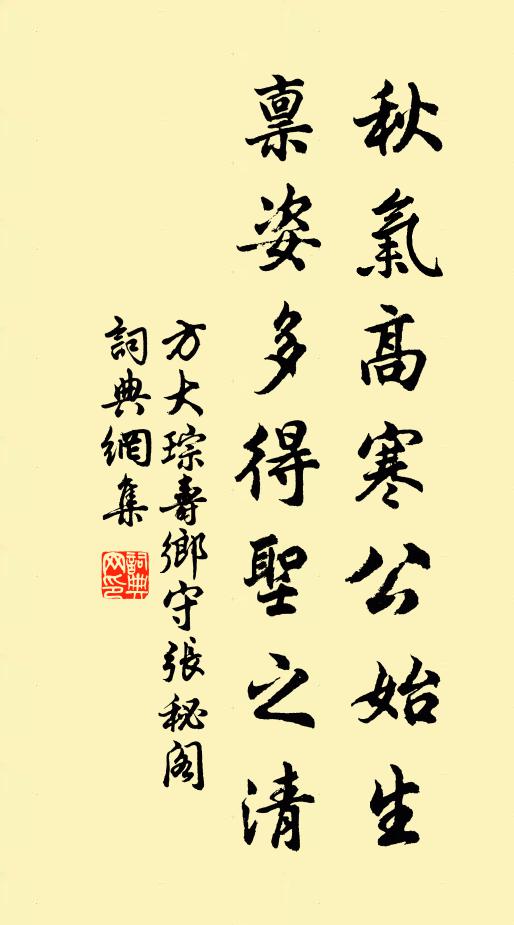 秋氣高寒公始生
稟姿多得聖之清
方大琮壽鄉守張秘阁
詞典網集
詞典网印